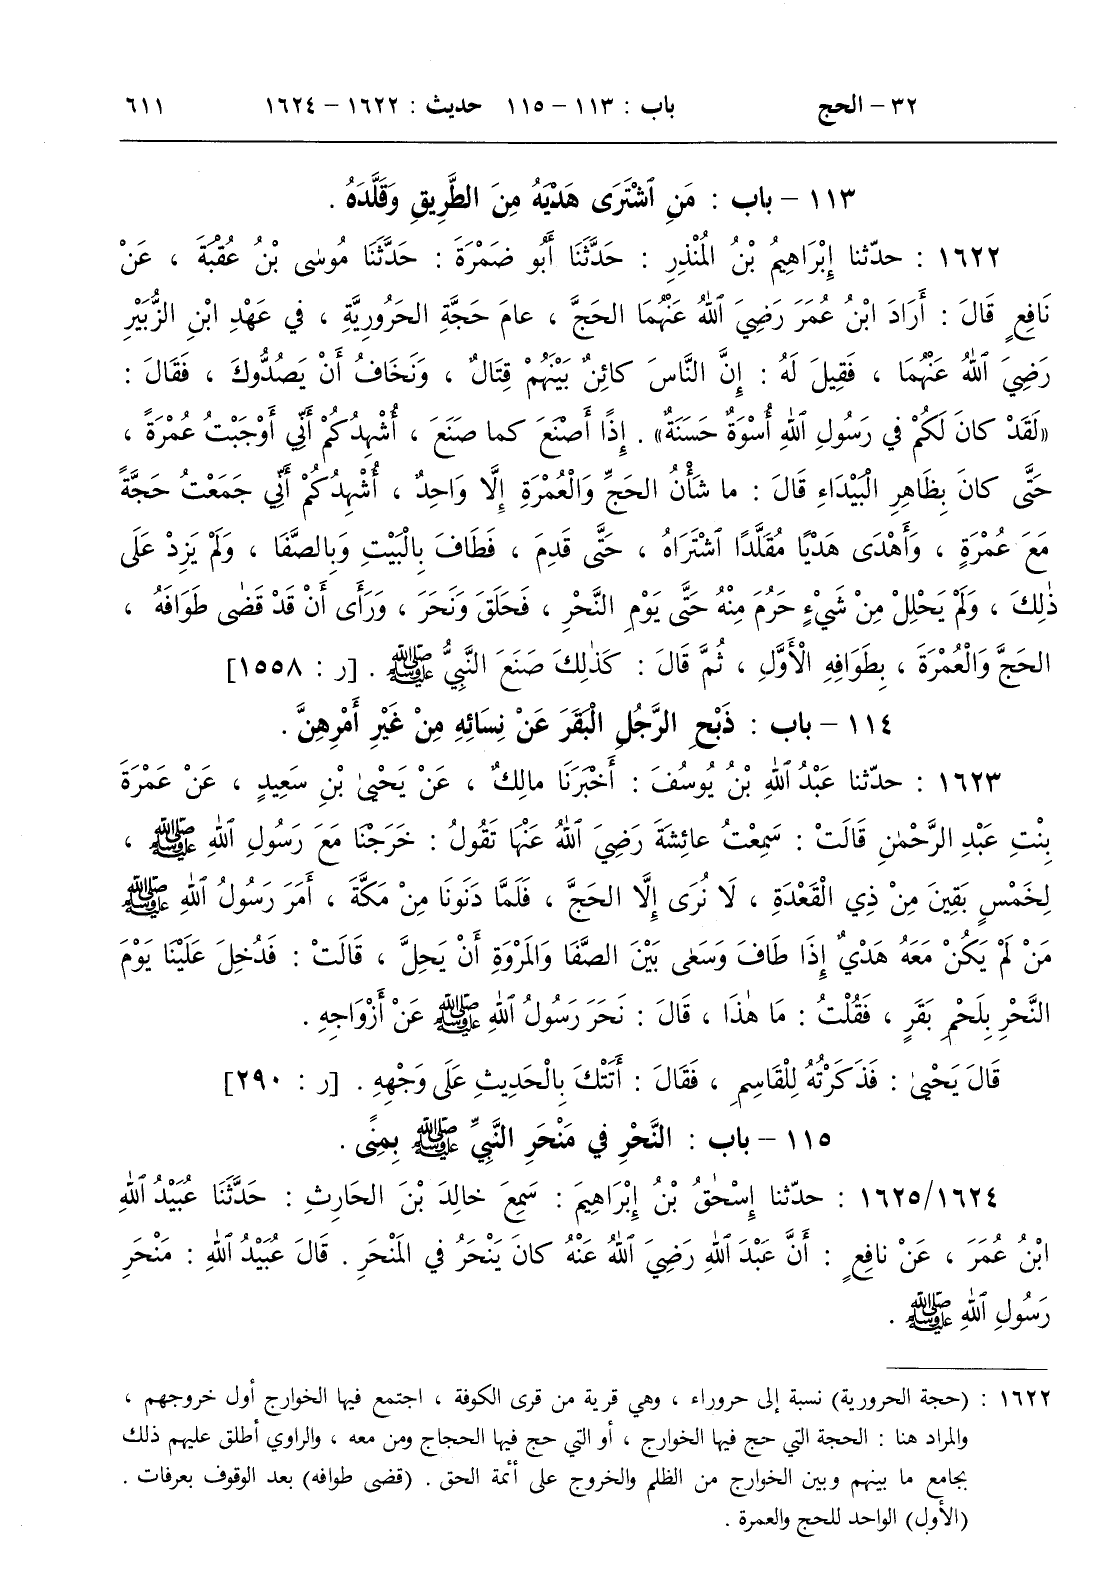 ٣٢ – الحج باب : ١١٣ – ١١٥ حديث : ١٦٢٢ – ١٦٢٤ ٦١١
١١٣ – باب : مَنِ ٱشْتَرَى هَدْيَهُ مِنَ الطَّرِيقِ وَقَلَّدَهُ .
١٦٢٢ : حدّثنا إِبْرَاهِيمُ بْنُ المُنْذِرِ : حَدَّثَنَا أَبُو ضَمْرَةَ : حَدَّثَنَا مُوسٰى بْنُ عُقْبَةَ ، عَنْ
نَافِعٍ قَالَ : أَرَادَ ابْنُ عُمَرَ رَضِيَ ٱللهُ عَنْهُمَا الحَجَّ ، عامَ حَجَّةِ الحَرُورِيَّةِ ، في عَهْدِ ابْنِ الزُّبَيْرِ
رَضِيَ ٱللهُ عَنْهُمَا ، فَقِيلَ لَهُ : إِنَّ النَّاسَ كائِنٌ بَيْنَهُمْ قِتَالٌ ، وَنَخَافُ أَنْ يَصُدُّوكَ ، فَقَالَ :
«لَقَدْ كانَ لَكُمْ في رَسُولِ ٱللهِ أُسْوَةٌ حَسَنَةٌ» . إِذًا أَصْنَعَ كما صَنَعَ ، أُشْهِدُكُمْ أَنِّي أَوْجَبْتُ عُمْرَةً ،
حَتَّى كانَ بِظَاهِرِ الْبَيْدَاءِ قَالَ : ما شَأْنُ الحَجِّ وَالْعُمْرَةِ إِلَّا وَاحِدٌ ، أُشْهِدُكُمْ أَنِّي جَمَعْتُ حَجَّةً
مَعَ عُمْرَةٍ ، وَأَهْدَى هَدْيًا مُقَلَّدًا ٱشْتَرَاهُ ، حَتَّى قَدِمَ ، فَطَافَ بِالْبَيْتِ وَبِالصَّفَا ، وَلَمْ يَزِدْ عَلَى
ذٰلِكَ ، وَلَمْ يَحْلِلْ مِنْ شَيْءٍ حَرُمَ مِنْهُ حَتَّى يَوْمِ النَّحْرِ ، فَحَلَقَ وَنَحَرَ ، وَرَأَى أَنْ قَدْ قَضٰى طَوَافَهُ ،
الحَجَّ وَالْعُمْرَةَ ، بِطَوَافِهِ الْأَوَّلِ ، ثُمَّ قَالَ : كَذٰلِكَ صَنَعَ النَّبِيُّ ﷺ . [ر : ١٥٥٨]
١١٤ – باب : ذَبْحِ الرَّجُلِ الْبَقَرَ عَنْ نِسَائِهِ مِنْ غَيْرِ أَمْرِهِنَّ .
١٦٢٣ : حدّثنا عَبْدُ ٱللهِ بْنُ يُوسُفَ : أَخْبَرَنَا مالِكٌ ، عَنْ يَحْيىٰ بْنِ سَعِيدٍ ، عَنْ عَمْرَةَ
بِنْتِ عَبْدِ الرَّحْمٰنِ قَالَتْ : سَمِعْتُ عائِشَةَ رَضِيَ ٱللهُ عَنْهَا تَقُولُ : خَرَجْنَا مَعَ رَسُولِ ٱللهِ ﷺ ،
لِخَمْسٍ بَقِينَ مِنْ ذِي الْقَعْدَةِ ، لَا نُرَى إِلَّا الحَجَّ ، فَلَمَّا دَنَونَا مِنْ مَكَّةَ ، أَمَرَ رَسُولُ ٱللهِ ﷺ
مَنْ لَمْ يَكُنْ مَعَهُ هَدْيٌ إِذَا طَافَ وَسَعٰى بَيْنَ الصَّفَا وَالمَرْوَةِ أَنْ يَحِلَّ ، قَالَتْ : فَدُخِلَ عَلَيْنَا يَوْمَ
النَّحْرِ بِلَحْمِ بَقَرٍ ، فَقُلْتُ : مَا هٰذَا ، قَالَ : نَحَرَ رَسُولُ ٱللهِ ﷺ عَنْ أَزْوَاجِهِ .
قَالَ يَحْيىٰ : فَذَكَرْتُهُ لِلْقَاسِمِ ، فَقَالَ : أَتَتْكَ بِالْحَدِيثِ عَلَى وَجْهِهِ . [ر : ٢٩٠]
١١٥ – باب : النَّحْرِ في مَنْحَرِ النَّبِيِّ ﷺ بِمِنًى .
١٦٢٥/١٦٢٤ : حدّثنا إِسْحٰقُ بْنُ إِبْرَاهِيمَ : سَمِعَ خالِدَ بْنَ الحَارِثِ : حَدَّثَنَا عُبَيْدُ ٱللهِ
ابْنُ عُمَرَ ، عَنْ نافِعٍ : أَنَّ عَبْدَ ٱللهِ رَضِيَ ٱللهُ عَنْهُ كانَ يَنْحَرُ في المَنْحَرِ . قَالَ عُبَيْدُ ٱللهِ : مَنْحَرِ
رَسُولِ ٱللهِ ﷺ .
١٦٢٢ : (حجة الحرورية) نسبة إلى حروراء ، وهي قرية من قرى الكوفة ، اجتمع فيها الخوارج أول خروجهم ،
والمراد هنا : الحجة التي حج فيها الخوارج ، أو التي حج فيها الحجاج ومن معه ، والراوي أطلق عليهم ذلك
بجامع ما بينهم وبين الخوارج من الظلم والخروج على أئمة الحق . (قضى طوافه) بعد الوقوف بعرفات .
(الأول) الواحد للحج والعمرة .